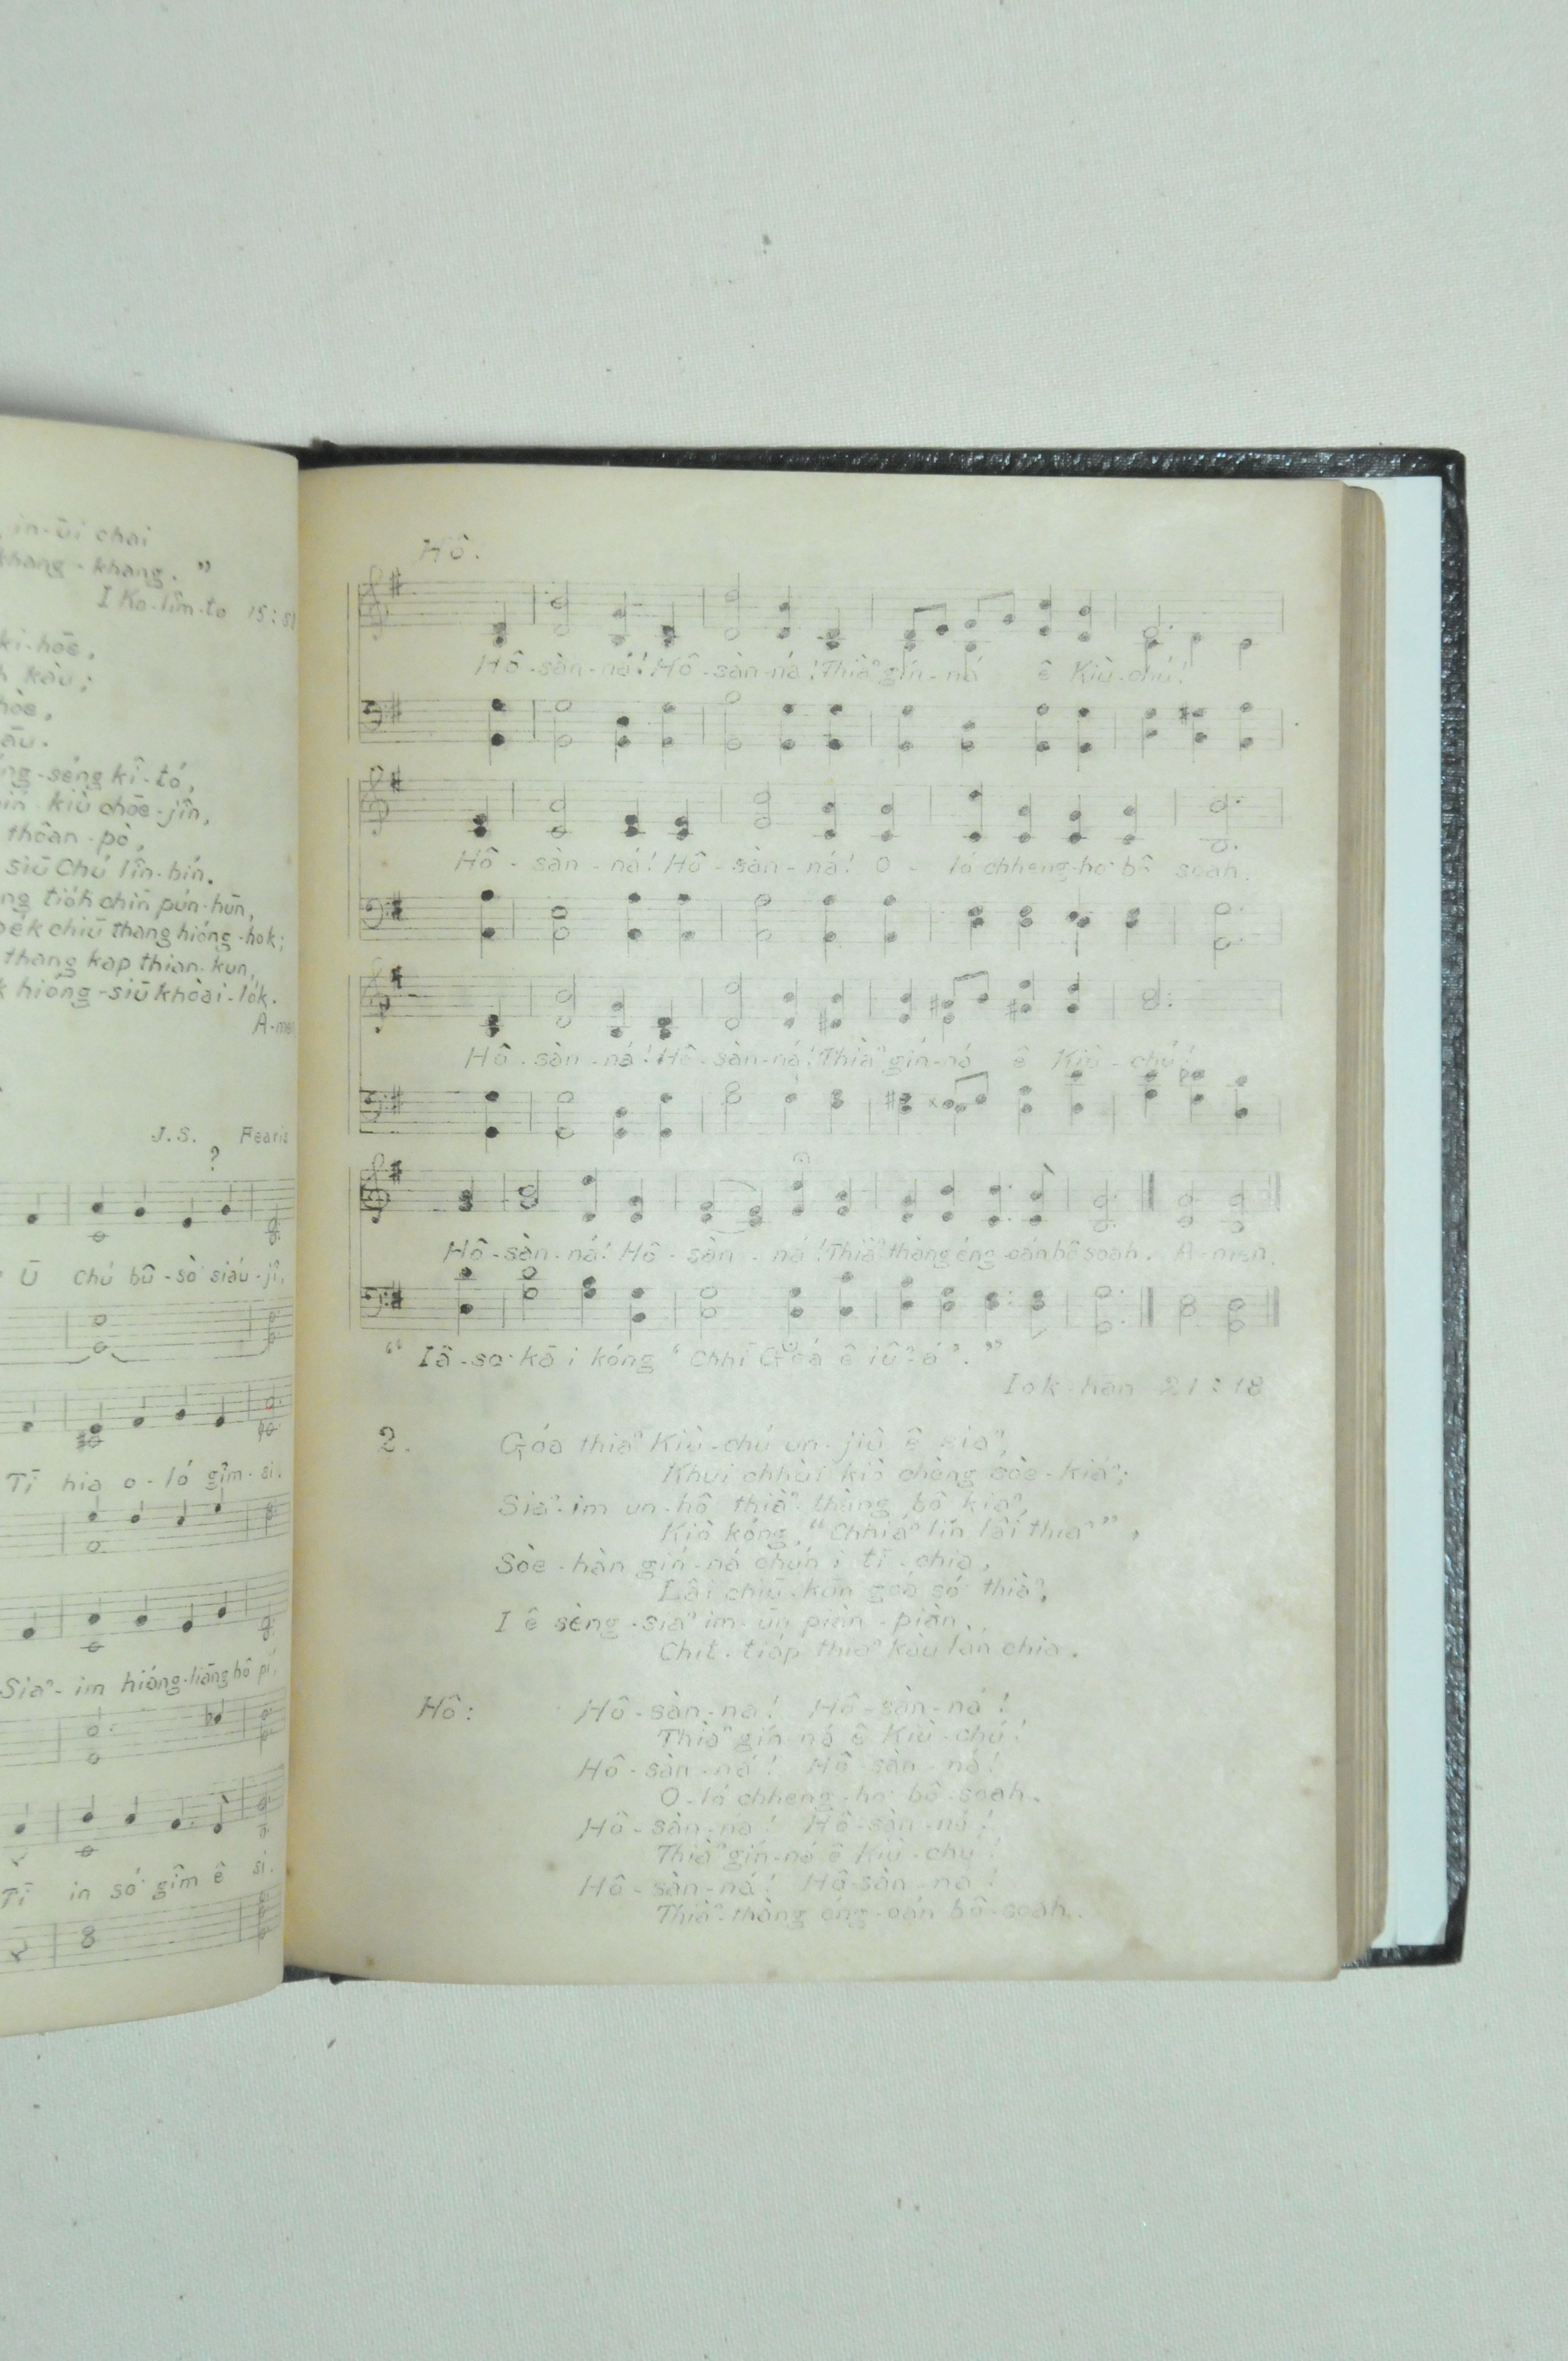 in-ūi chai
khang-khang.”
I Ko-lîm-to 15:58
ki-hōe,
kàu;
āu.
séng kî-tó,
kiù chōe-jîn,
thoân-pò,
siū Chú lîn-bín.
tióh chīn pún-hūn,
chiū thang hióng-hok;
thang kap thian-kun,
hióng-siū khòai-lók.
A-men
J.S. Fearis
?
Ū chú bû-sò͘ siáu-jî,
Tī hia o-ló gîm-si.
Siaⁿ-im hióng-liāng hô pí,
Tī in só͘ gîm ê si.
Hô.
Hô-sàn-ná! Hô-sàn-ná! Thiàⁿ gín-ná ê Kiù-chú!
Hô-sàn-ná! Hô-sàn-ná! O-ló chheng-ho͘ bô soah.
Hô-sàn-ná! Hô-sàn-ná! Thiàⁿ gín-ná ê Kiù-chú!
Hô-sàn-ná! Hô-sàn-ná! Thiⁿ-thàng éng-oán bô soah. A-men.
“Iâ-so͘ kā i kóng ‘Chhī Góa ê iûⁿ-á’.”
Iok-hān 21:18
2. Góa thiaⁿ Kiù-chú un-jiû ê siaⁿ,
Khui chhùi kiò chòng sòe-kiáⁿ;
Siaⁿ-im un-hô thiàⁿ-thàng bô kiaⁿ,
Kiò kóng, “Chhiáⁿ lín lâi thiaⁿ”,
Sòe-hàn gín-ná chún i tī-chia,
Lâi chiū-kūn góa só͘ thiàⁿ,
I ê sèng-siaⁿ im-ūn piàn-piàn
Chit-tiáp thiaⁿ kàu lán chia.
Hô: Hô-sàn-ná! Hô-sàn-ná!
Thiàⁿ gín-ná ê Kiù-chú!
Hô-sàn-ná! Hô-sàn-ná!
O-ló chheng-ho͘ bô-soah.
Hô-sàn-ná! Hô-sàn-ná!
Thiàⁿ gín-ná ê Kiù-chú!
Hô-sàn-ná! Hô-sàn-ná!
Thiàⁿ-thàng éng-oán bô-soah.